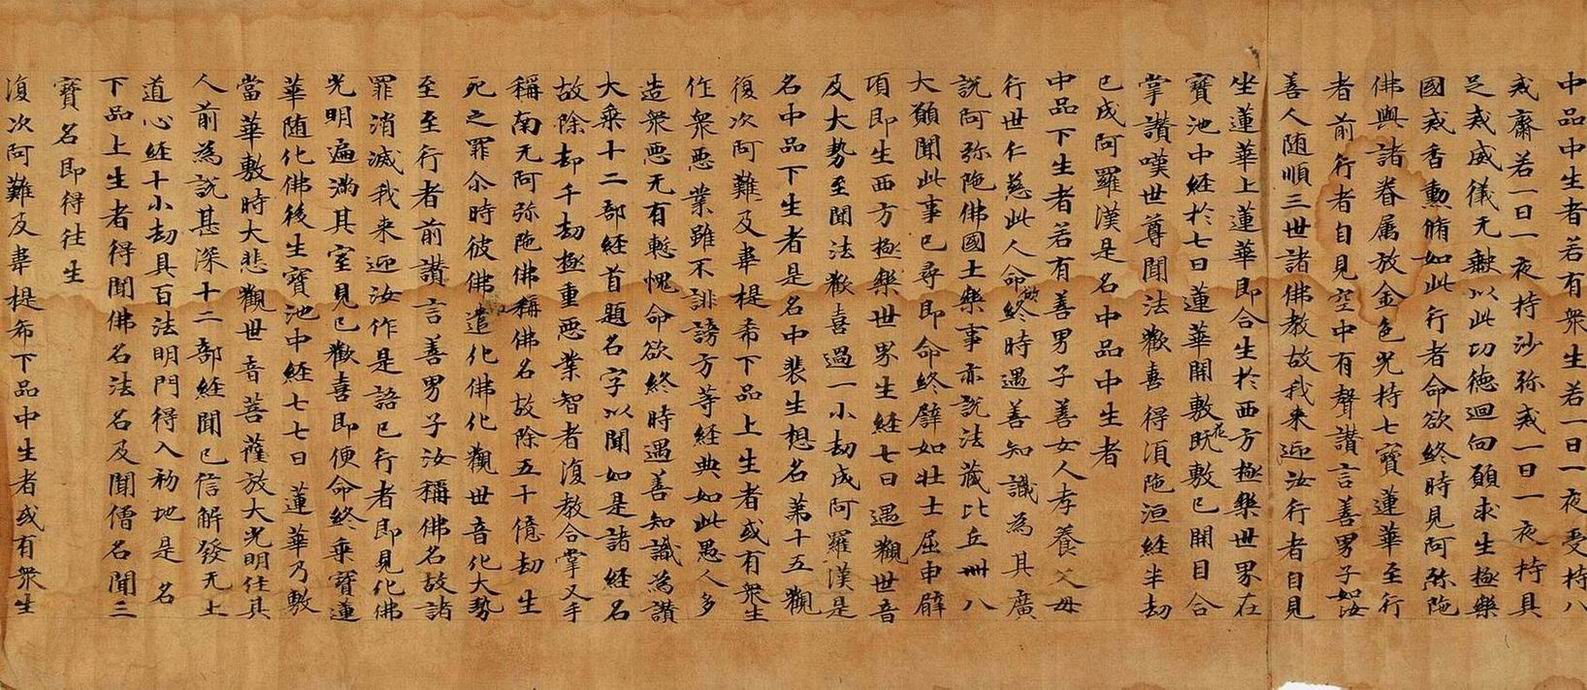 中品中生者若有衆生若一日一夜受持八
戒齋若一日一夜持沙弥戒一日一夜持具
足戒威儀无缺以此功徳迴向願求生極樂
國戒香動脩如此行者命欲終時見阿弥陁
佛與諸眷属放金色光持七寶蓮華至行
者前行者自見空中有聲讃言善男子如汝
善人随順三世諸佛教故我来迎汝行者自見
坐蓮華上蓮華即合生於西方極樂世界在
寶池中経於七日蓮華開敷既敷已開目合
掌讃嘆世尊聞法歡喜得湏陁洹経半劫
已成阿羅漢是名中品中生者
中品下生者若有善男子善女人孝養父母
行世仁慈此人命欲終時遇善知識為其廣
説阿弥陁佛國土樂事亦説法藏比丘卌八
大願聞此事已尋即命終譬如壮士屈申臂
項即生西方極樂世界生経七日遇觀世音
及大勢至聞法歡喜過一小劫成阿羅漢是
名中品下生者是名中輩生想名第十五觀
復次阿難及韋提希下品上生者或有衆生
作衆惡業雖不誹謗方等経典如此愚人多
造衆惡无有慙愧命欲終時遇善知識為讃
大乗十二部経首題名字以聞如是諸経名
故除却千劫極重惡業智者復教合掌叉手
稱南无阿弥陁佛稱佛名故除五十億劫生
死之罪尒時彼佛遣化佛化觀世音化大勢
至至行者前讃言善男子汝稱佛名故諸
罪消滅我来迎汝作是語已行者即見化佛
光明遍滿其室見已歡喜即便命終乗寶蓮
華随化佛後生寶池中経七七日蓮華乃敷
當華敷時大悲觀世音菩薩放大光明住其
人前為説甚深十二部経聞已信解發无上
道心経十小劫具百法明門得入初地是名
下品上生者得聞佛名法名及聞僧名聞三
寶名即得往生
復次阿難及韋提希下品中生者或有衆生